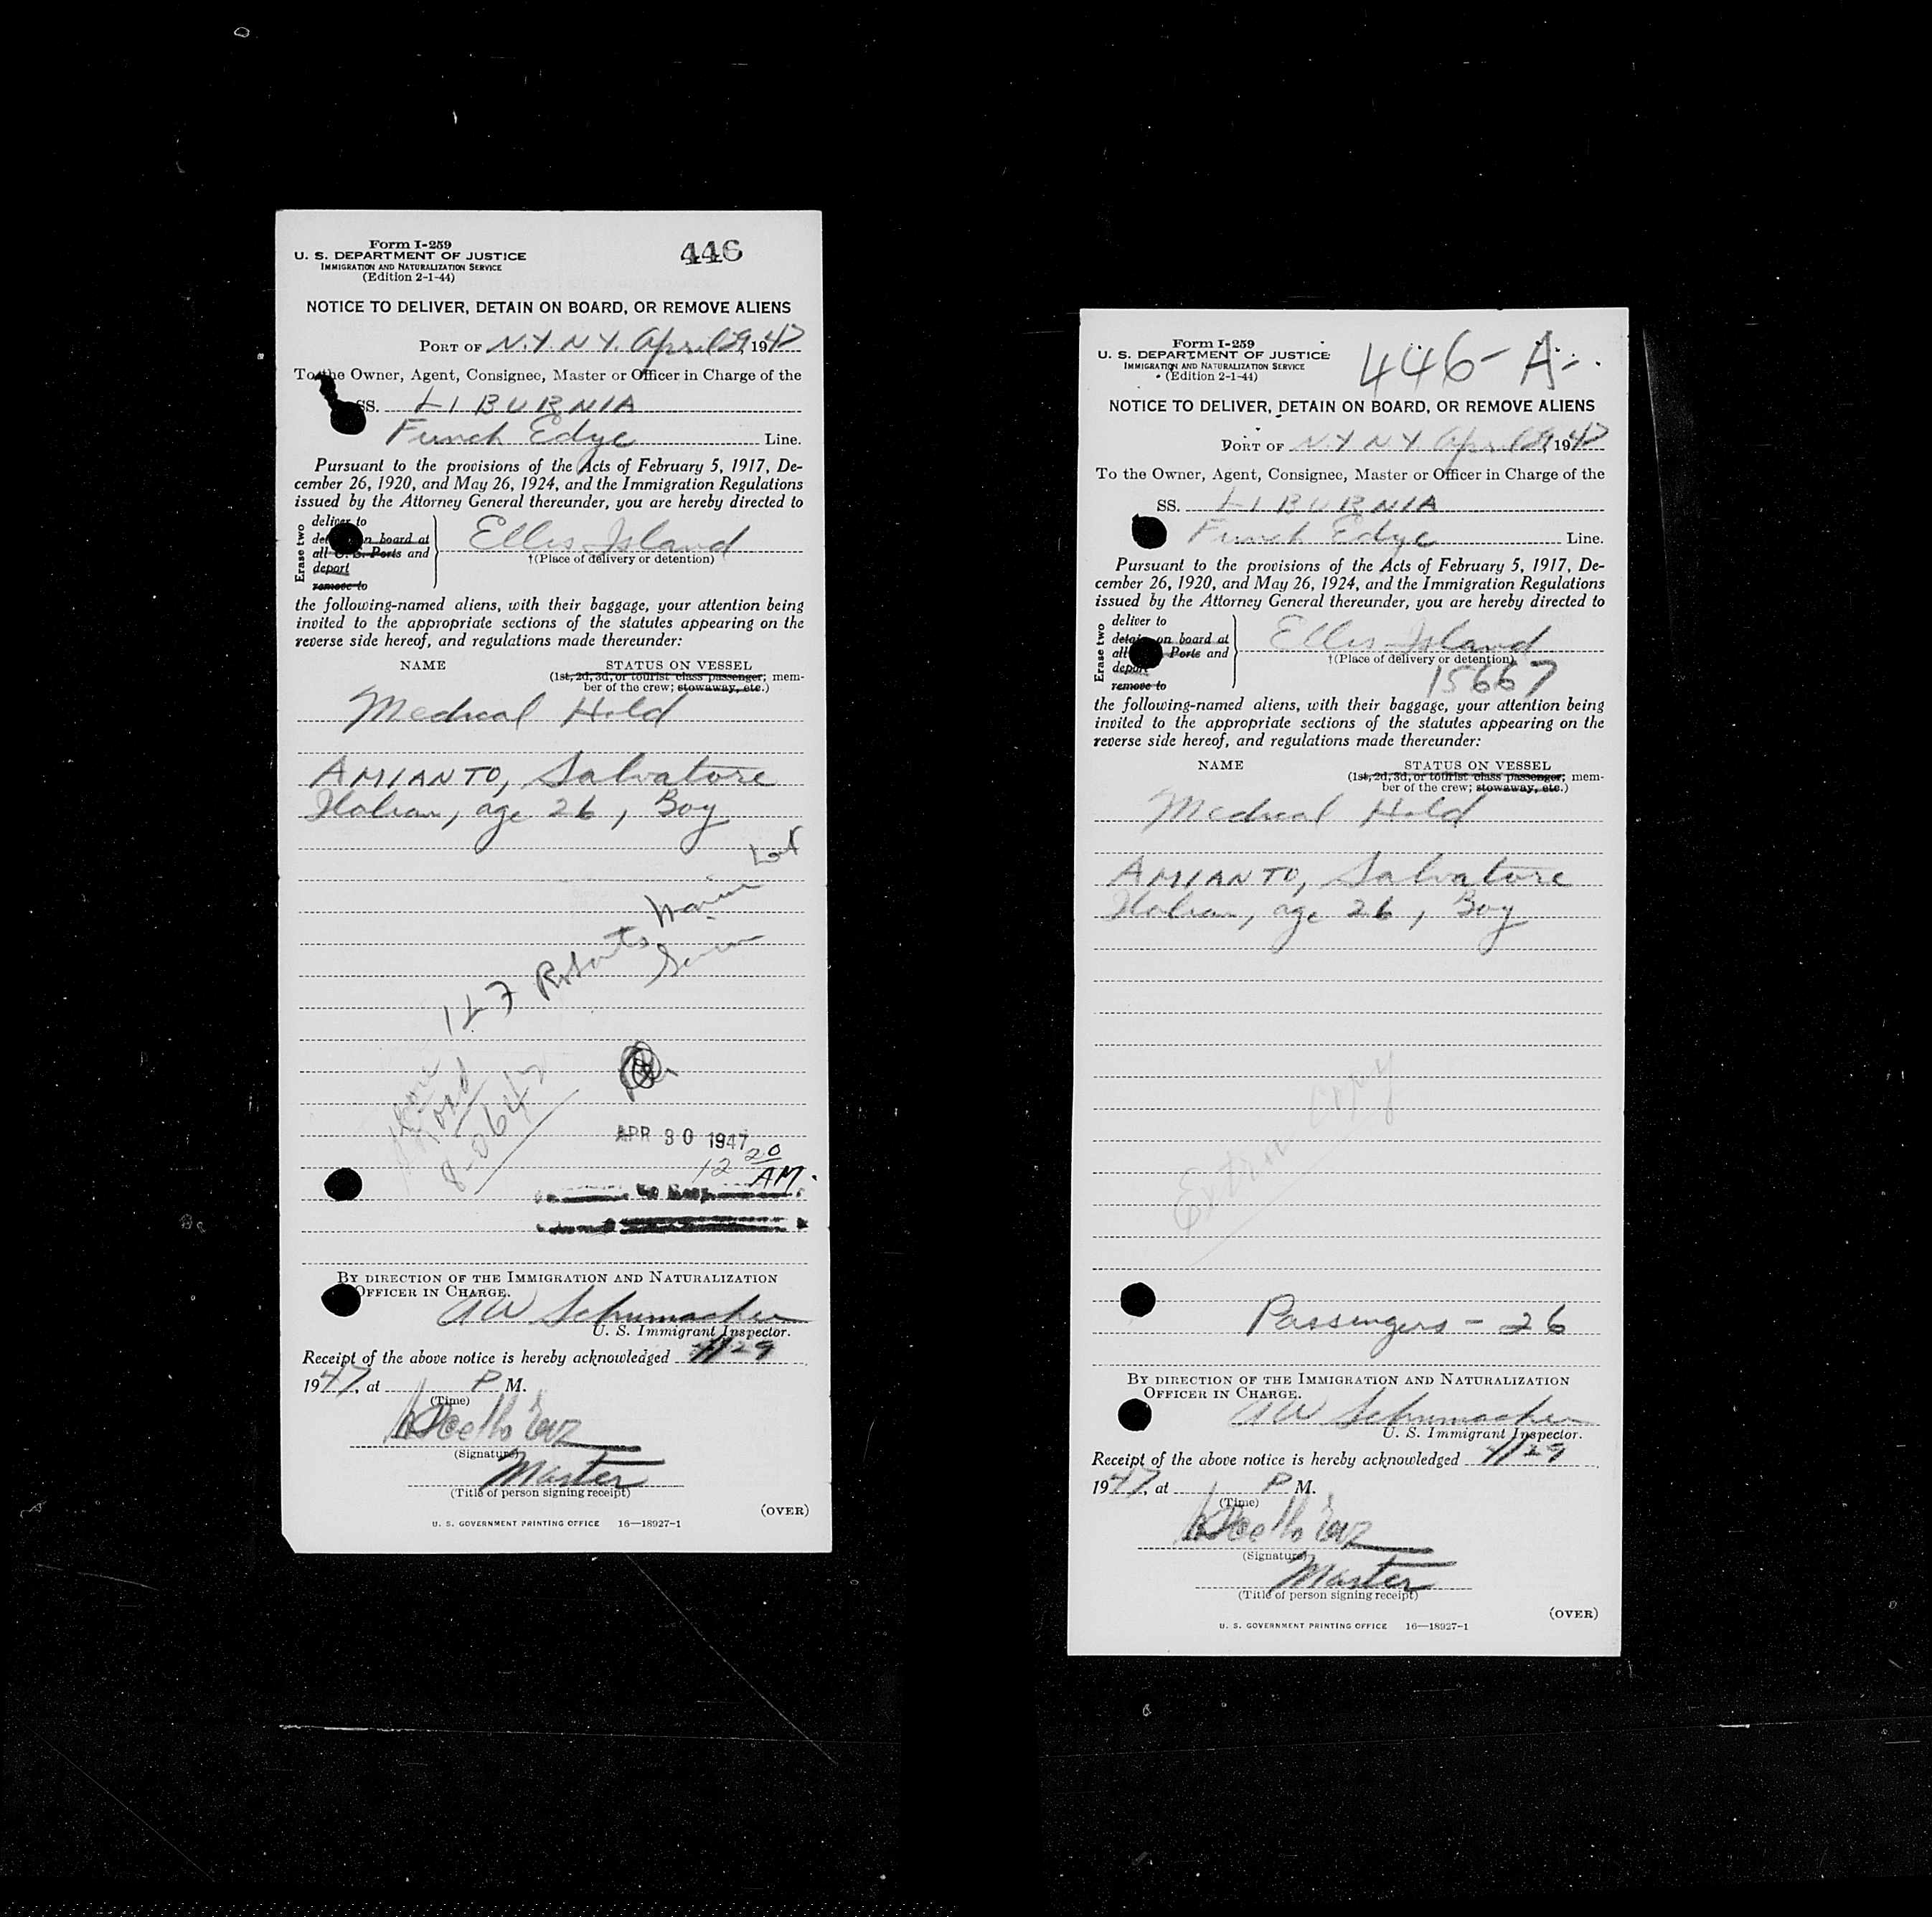 Form I-259
U. S. DEPARTMENT OF JUSTICE
IMMIGRATION AND NATURALIZATION SERVICE
(Edition 2-1-44)
446
NOTICE TO DELIVER, DETAIN ON BOARD, OR REMOVE ALIENS
PORT OF N.Y. N.Y. April 29, 1947
To the Owner, Agent, Consignee, Master or Officer in Charge of the
SS. LIBURNIA
Funch Edye Line.
Pursuant to the provisions of the Acts of February 5, 1917, De-
cember 26, 1920, and May 26, 1924, and the Immigration Regulations
issued by the Attorney General thereunder, you are hereby directed to
Erase two
deliver to
detain on board at
all U. S. Ports and
deport
remove to
Ellis Island
†(Place of delivery or detention)
the following-named aliens, with their baggage, your attention being
invited to the appropriate sections of the statutes appearing on the
reverse side hereof, and regulations made thereunder:
NAME STATUS ON VESSEL
(1st, 2d, 3d, or tourist class passenger; mem-
ber of the crew; stowaway, etc.)
Medical Hold
AMIANTO, Salvatore
Italian, age 26, Boy
APR 30 1947
12 20
AM.
BY DIRECTION OF THE IMMIGRATION AND NATURALIZATION
OFFICER IN CHARGE.
AW Schumacher
U. S. Immigrant Inspector.
Receipt of the above notice is hereby acknowledged 4/29
1947, at P M.
(Time)
(Signature)
Master
(Title of person signing receipt)
(OVER)
U. S. GOVERNMENT PRINTING OFFICE 16—18927-1
Form I-259
U. S. DEPARTMENT OF JUSTICE
IMMIGRATION AND NATURALIZATION SERVICE
(Edition 2-1-44)
446-A
NOTICE TO DELIVER, DETAIN ON BOARD, OR REMOVE ALIENS
PORT OF N.Y N.Y April 29, 1947
To the Owner, Agent, Consignee, Master or Officer in Charge of the
SS. LIBURNIA
Funch Edye Line.
Pursuant to the provisions of the Acts of February 5, 1917, De-
cember 26, 1920, and May 26, 1924, and the Immigration Regulations
issued by the Attorney General thereunder, you are hereby directed to
Erase two
deliver to
detain on board at
all U. S. Ports and
deport
remove to
Ellis Island
†(Place of delivery or detention)
15667
the following-named aliens, with their baggage, your attention being
invited to the appropriate sections of the statutes appearing on the
reverse side hereof, and regulations made thereunder:
NAME STATUS ON VESSEL
(1st, 2d, 3d, or tourist class passenger; mem-
ber of the crew; stowaway, etc.)
Medical Hold
AMIANTO, Salvatore
Italian, age 26, Boy
Extra Copy
Passengers - 26
BY DIRECTION OF THE IMMIGRATION AND NATURALIZATION
OFFICER IN CHARGE.
AW Schumacher
U. S. Immigrant Inspector.
Receipt of the above notice is hereby acknowledged 4/29
1947, at P M.
(Time)
(Signature)
Master
(Title of person signing receipt)
(OVER)
U. S. GOVERNMENT PRINTING OFFICE 16—18927-1